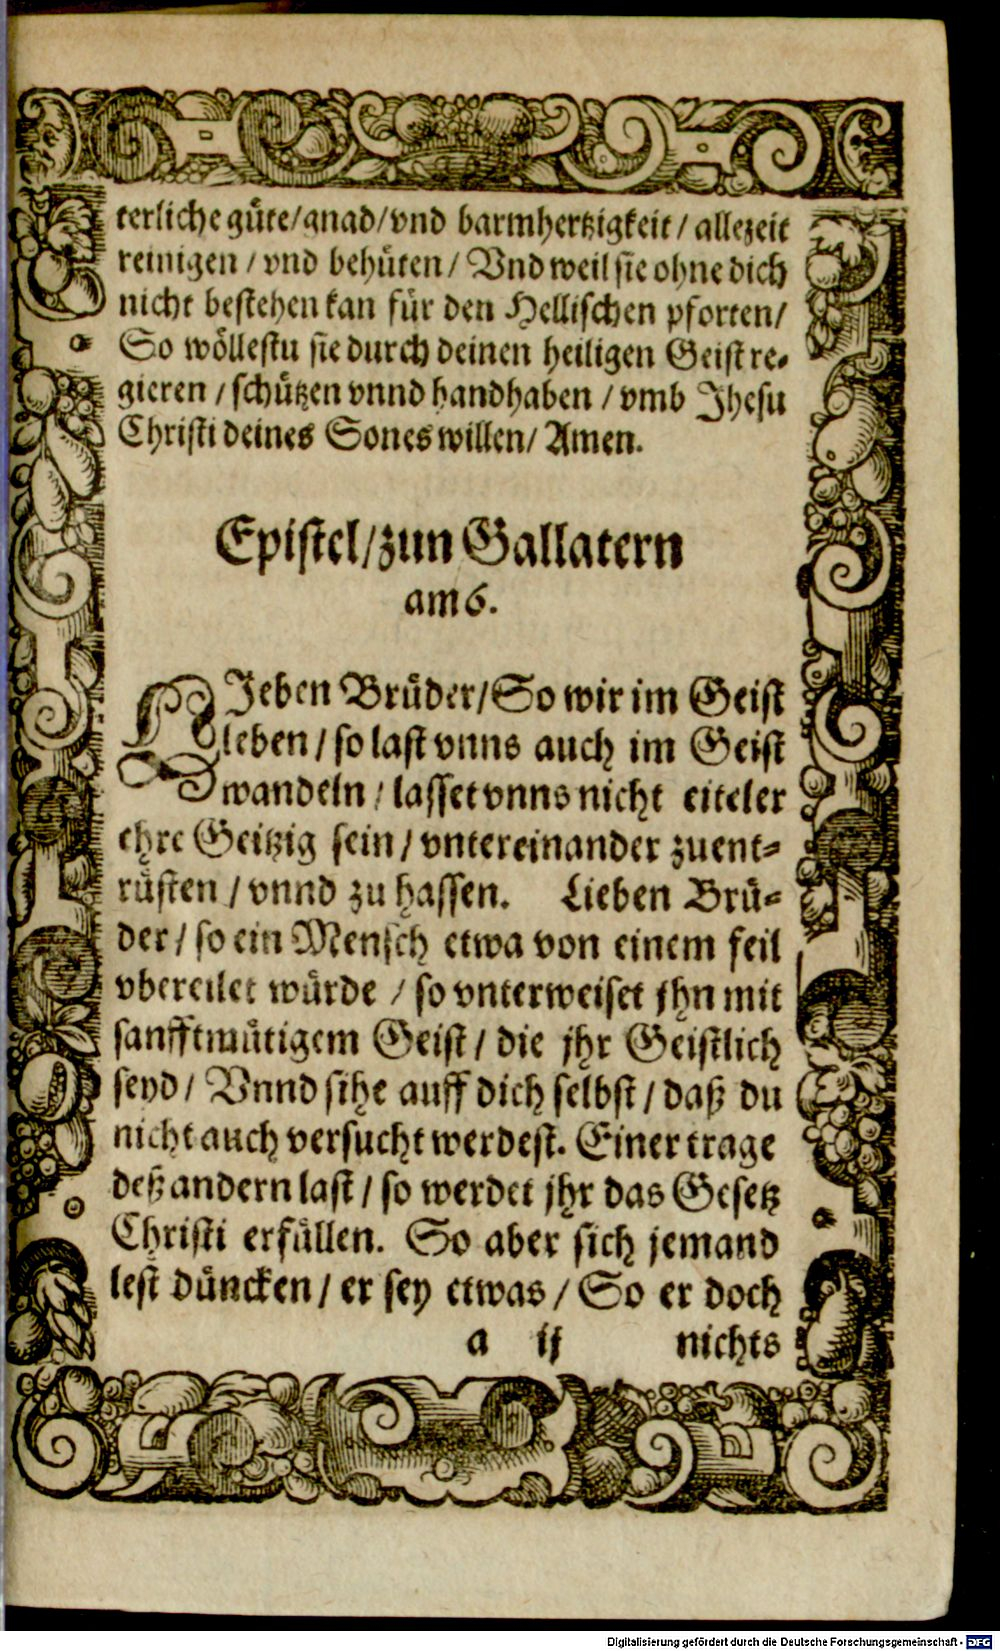 terliche güte/gnad/vnd barmhertzigkeit/ allezeit
reinigen / vnd behüten / Vnd weil sie ohne dich
nicht bestehen kan für den Hellischen pforten/
So wöllestu sie durch deinen heiligen Geist re-
gieren / schützen vnnd handhaben / vmb Jhesu
Christi deines Sones willen/ Amen.
Epistel/zun Gallatern
am 6.
LJeben Brüder/So wir im Geist
leben / so last vnns auch im Geist
wandeln / lasset vnns nicht eiteler
ehre Geitzig sein / vntereinander zuent-
rüsten / vnnd zu hassen. Lieben Brü-
der / so ein Mensch etwa von einem feil
vbereilet würde / so vnterweiset jhn mit
sanfftmütigem Geist / die jhr Geistlich
seyd / Vnnd sihe auff dich selbst / daß du
nicht auch versucht werdest. Einer trage
deß andern last / so werdet jhr das Gesetz
Christi erfüllen. So aber sich jemand
lest düncken / er sey etwas / So er doch
a ij nichts
Digitalisierung gefördert durch die Deutsche Forschungsgemeinschaft - DFG